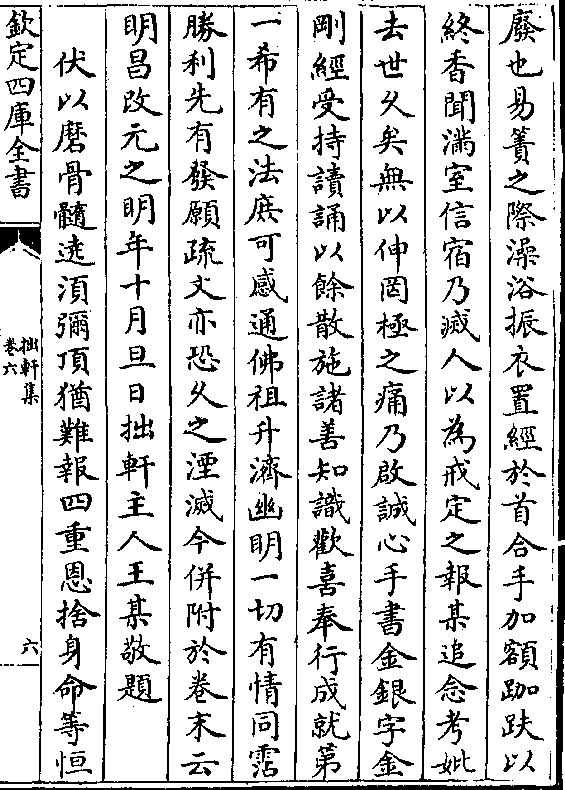 廢也易簀之際澡浴振衣置經於首合手加額跏趺以
終香聞滿室信宿乃滅人以為戒定之報某追念考妣
去世久矣無以伸罔極之痛乃啟誠心手書金銀字金
剛經受持讀誦以餘散施諸善知識歡喜奉行成就第
一希有之法庶可感通佛祖升濟幽明一切有情同霑
勝利先有發願疏文亦恐久之湮滅今併附於卷末云
明昌改元之明年十月旦日拙軒主人王某敬題
伏以磨骨髓遶湏彌頂猶難報四重恩捨身命等恒
欽定四庫全書
拙軒集
卷六
六